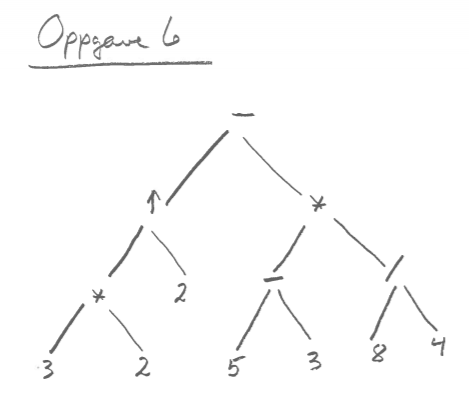 Oppgave 6
−
↑ *
* 2 − /
3 2 5 3 8 4